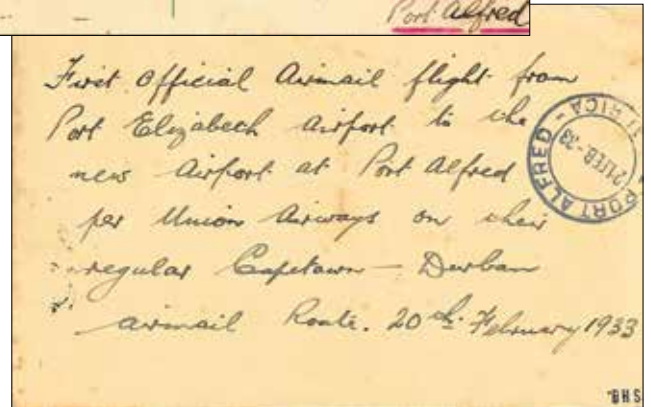 Port Alfred
First Official Airmail flight from
Port Elizabeth Airport to the
new Airport at Port Alfred
per Union Airways on their
regular Capetown — Durban
airmail Route. 20th. February 1933
PORT ALFRED -
21 FEB -33
BHS